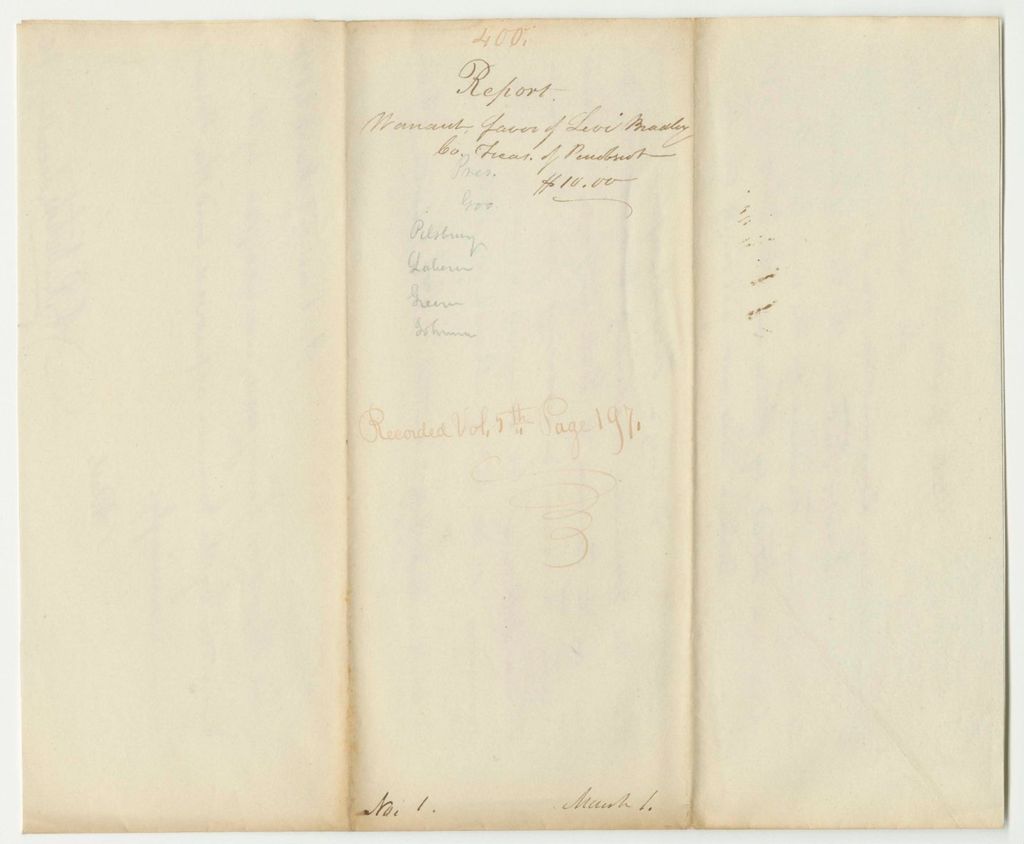 400.
Report
Warrant, favor of Levi Bradley
Co. Treas. of Penobscot
$10.00
Pres.
Gov.
Pilsbury
Laborn
Green
Johnson
Recorded Vol. 5th Page 197.
No. 1.
March 1.